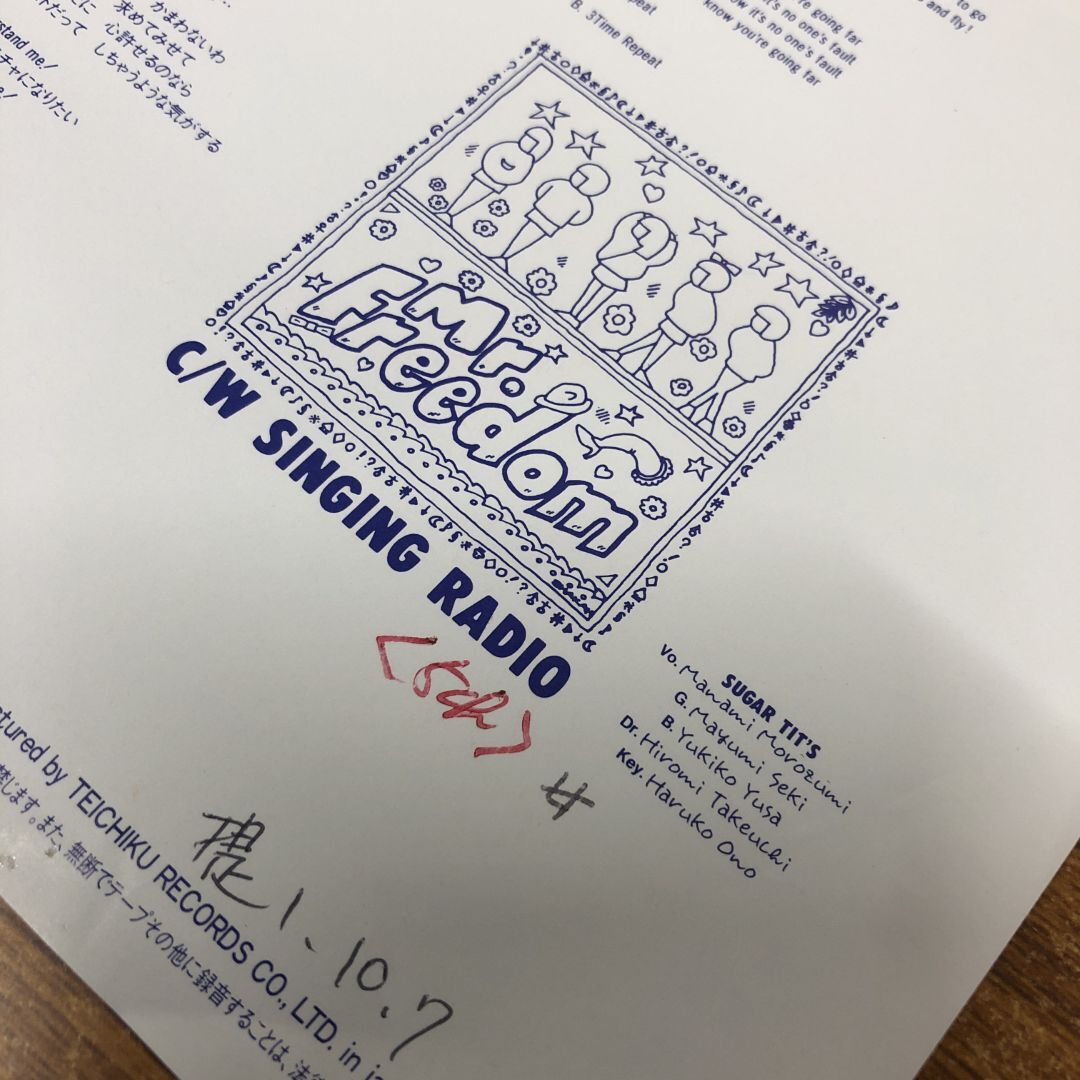 かまわないわ
求めてみせて
心許せるのなら
しちゃうような気がする
stand me!
チャになりたい
to go
and fly!
re going far
ow it's no one's fault
know you're going far
B. 3Time Repeat
Mr.
Freedom
C/W SINGING RADIO
<5ch>
SUGAR TIT'S
Vo. Manami Morozumi
G. Mayumi Seki
B. Yukiko Yusa
Dr. Hiromi Takeuchi
Key. Haruko Ono
1.10.7
ctured by TEICHIKU RECORDS CO., LTD. in
禁じます。また、無断でテープその他に録音することは、法